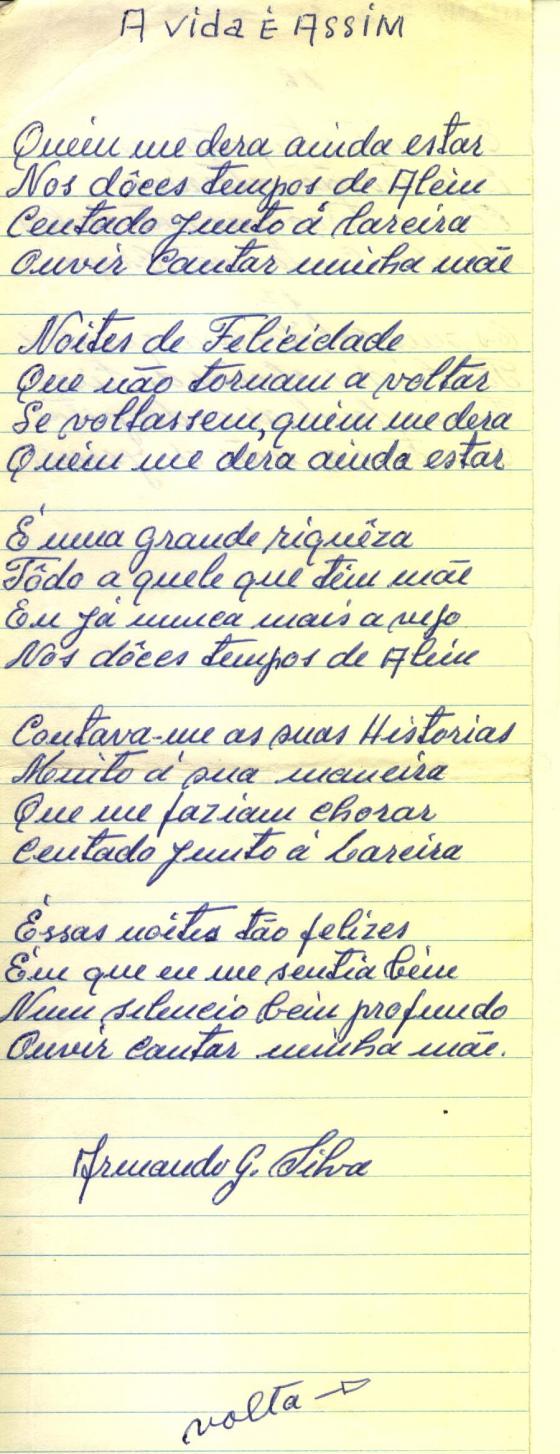 A vida É ASSIM
Quém me dera ainda estar
Nos dôces tempos de Além
Centado junto á lareira
Ouvir Cantar minha mãe
Noites de Felicidade
Que não tornam a voltar
Se voltassem, quém me dera
Quém me dera ainda estar
É uma grande riquêza
Tôdo a quele que têm mãe
Eu já nunca mais a vejo
Nos dôces tempos de Além
Contava-me as suas Historias
Muito á sua maneira
Que me faziam chorar
Centado junto á Lareira
Éssas noites tão felizes
Ém que eu me sentia bém
Num silencio bem profundo
Ouvir cantar minha mãe.
Armando G. Silva
volta →